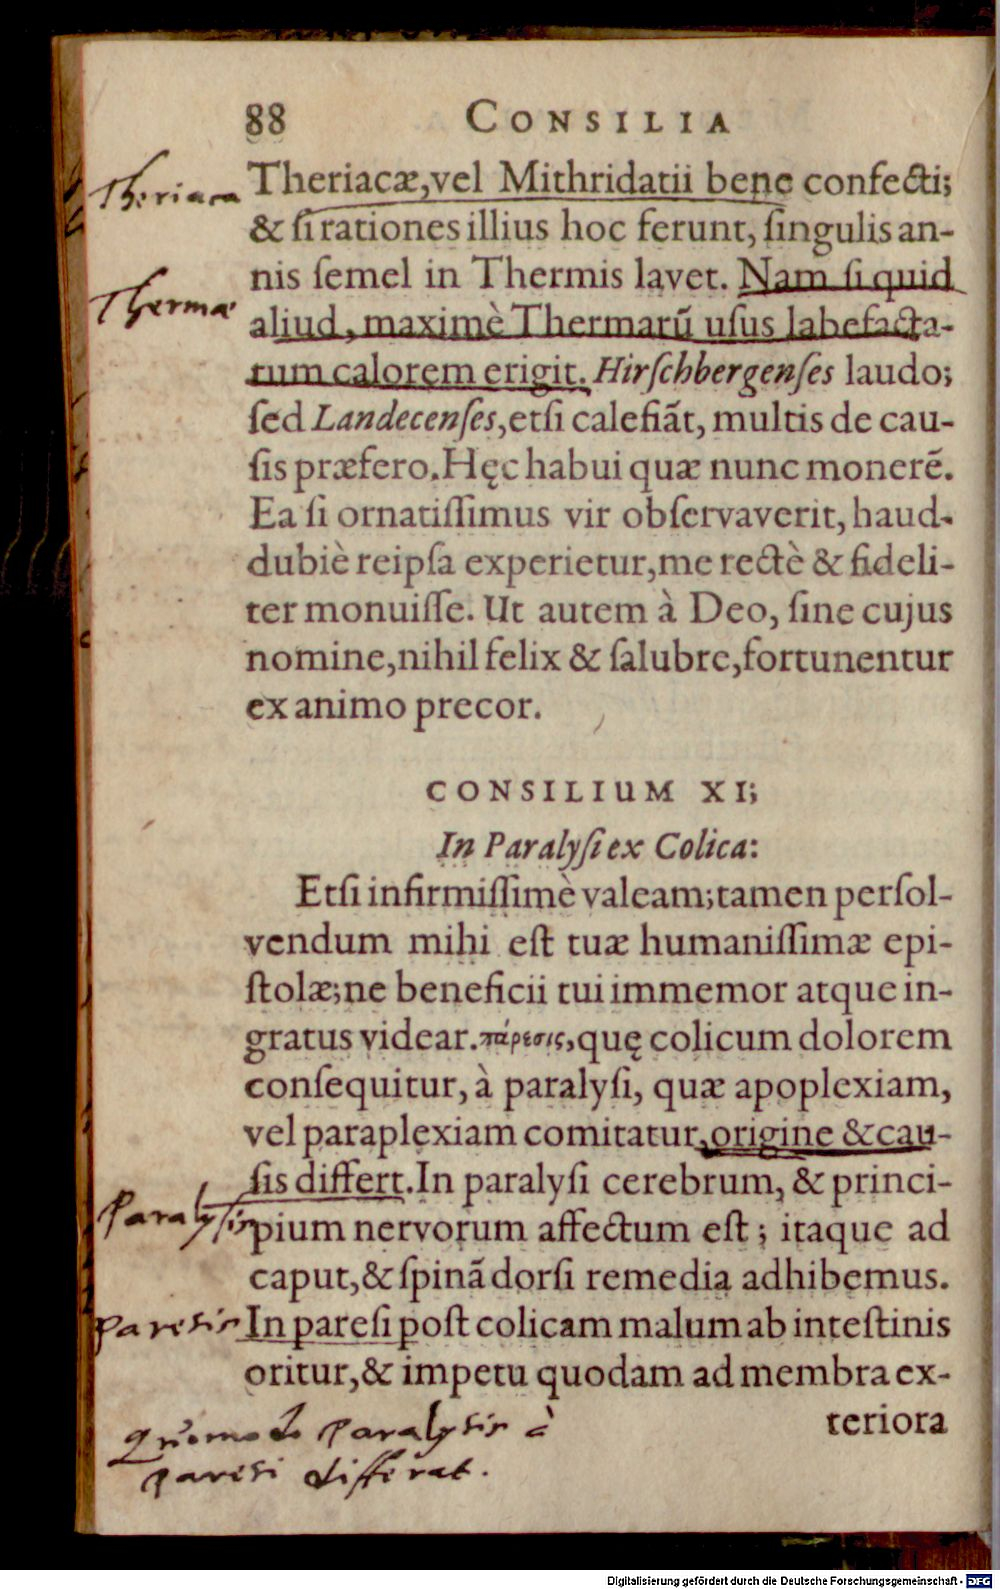 88 CONSILIA
Theriaca
Theriacæ, vel Mithridatii bene confecti;
& ſi rationes illius hoc ferunt, ſingulis an-
nis ſemel in Thermis lavet. Nam ſi quid
Thermæ
aliud, maximè Thermarũ uſus labefacta-
tum calorem erigit. Hirſchbergenſes laudo;
ſed Landecenſes, etſi calefiãt, multis de cau-
ſis præfero. Hęc habui quæ nunc monerẽ.
Ea ſi ornatiſſimus vir obſervaverit, haud-
dubiè reipſa experietur, me rectè & fideli-
ter monuiſſe. Ut autem à Deo, ſine cujus
nomine, nihil felix & ſalubre, fortunentur
ex animo precor.
CONSILIUM XI;
In Paralyſi ex Colica:
Etſi infirmiſſimè valeam; tamen perſol-
vendum mihi eſt tuæ humaniſſimæ epi-
ſtolæ; ne beneficii tui immemor atque in-
gratus videar. πάρεσις, quę colicum dolorem
conſequitur, à paralyſi, quæ apoplexiam,
vel paraplexiam comitatur, origine & cau-
ſis differt. In paralyſi cerebrum, & princi-
Paralyſis
pium nervorum affectum eſt; itaque ad
caput, & ſpinã dorſi remedia adhibemus.
Paresis
In pareſi poſt colicam malum ab inteſtinis
oritur, & impetu quodam ad membra ex-
teriora
Quomodo Paralysis à
paresi differat.
Digitalisierung gefördert durch die Deutsche Forschungsgemeinschaft - DFG